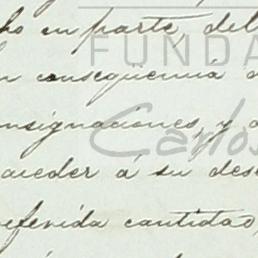 ho en parte del
n consegüencia d
nsignaciones, y a
acceder á su des
referida cantidad,
FUNDA
Carlos